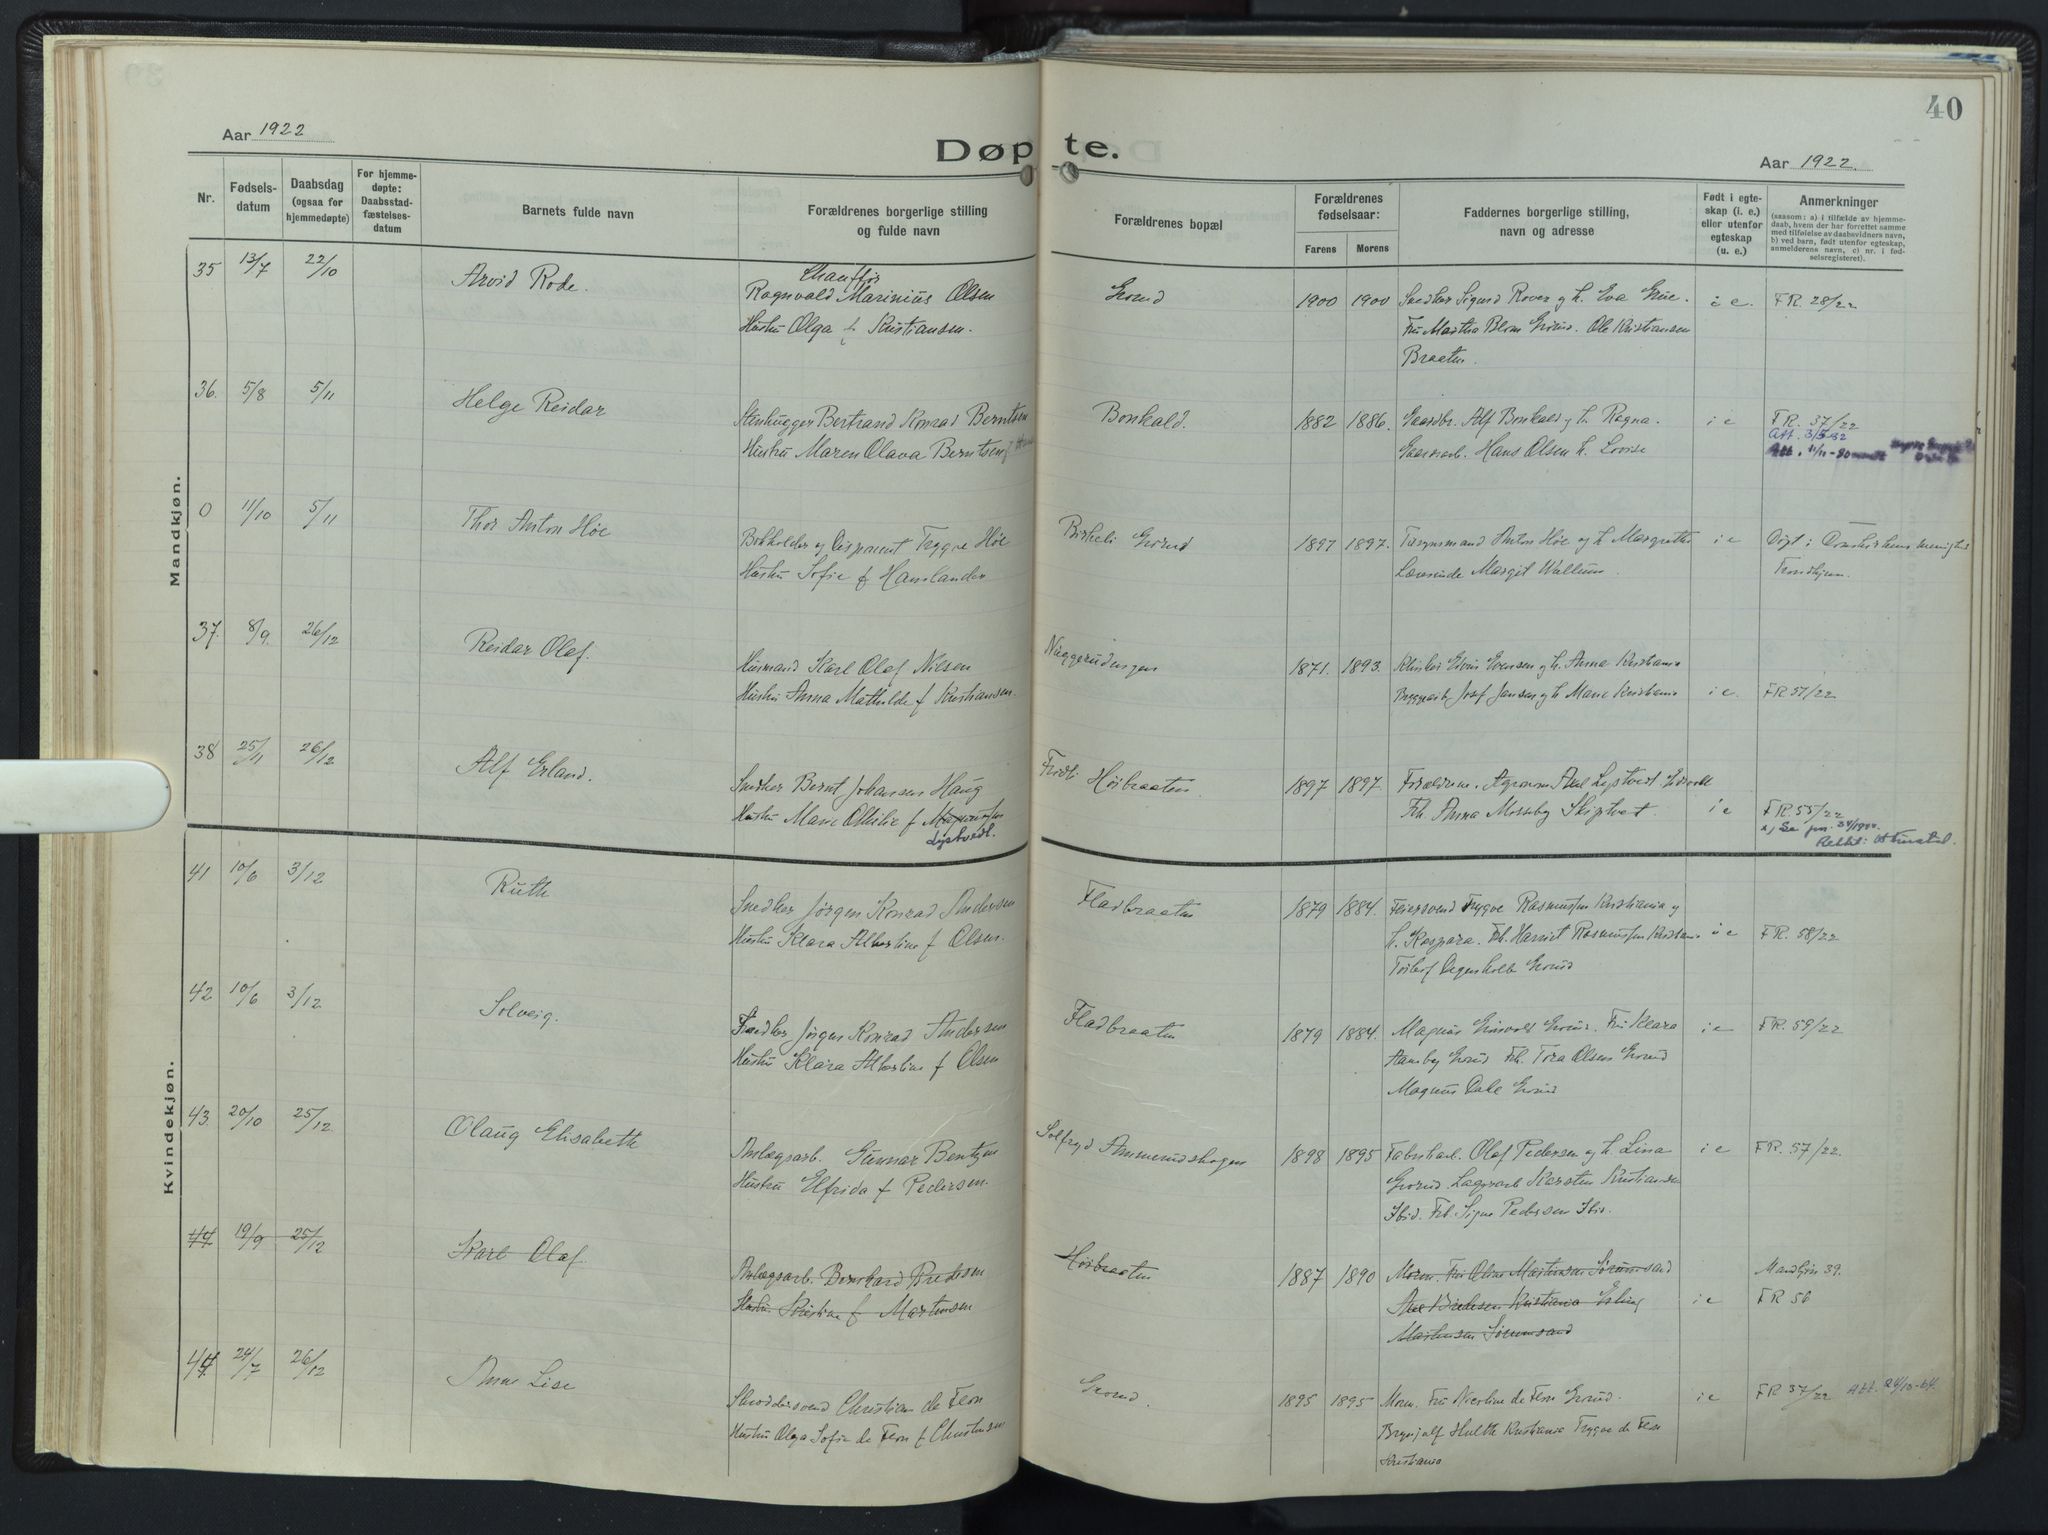 40
Aar 1922
Døpte.
Aar 1922.
Nr.
Fødsels-
datum
Daabsdag
(ogsaa for
hjemmedøpte)
For hjemme-
døpte:
Daabsstad-
fæstelses-
datum
Barnets fulde navn
Forældrenes borgerlige stilling
og fulde navn
Forældrenes bopæl
Forældrenes
fødselsaar:
Farens Morens
Faddernes borgerlige stilling,
navn og adresse
Født i egte-
skap (i. e.)
eller utenfor
egteskap
(u. e.)
Anmerkninger
(saasom: a) i tilfælde av hjemme-
daab, hvem der har forrettet samme
med tilføielse av daabsvidners navn,
b) ved barn, født utenfor egteskap,
anmelderens navn, c) nr. i fød-
selsregisteret).
Mandkjøn.
35 13/7 22/10 Arvid Rode.
Chauffør
Ragnvald Marinius Olsen
Hustru Olga f. Kristiansen.
Grorud
1900 1900
Snedker Sigurd Rover og h. Eva Grue.
Fru Martha Blom Grorud. Ole Kristiansen
Braaten.
i e. FR. 28/22
36. 5/8 5/11 Helge Reidar
Stenhugger Bertrand Konrad Berntsen
Hustru Maren Olava Berntsen
Bonkald.
1882 1886.
Gaardbr. Alf Bonkald og h. Ragna.
Gaardarb. Hans Olsen h. Lovise
i e FR. 37/22
Att. 3/5-32
Att. 11/11-80
0 11/10 5/11 Thor Anton Høe
Bokholder og Disponent Trygve Høe
Hustru Sofie f. Hanslander
Birkeli Grorud
1897 1897.
Anton Høe og h. Margrethe
Lærerinde Margit Wullum.
i e Døpt i Domkirkens menighet
Trondhjem.
37. 8/9. 26/12 Reidar Olaf.
Husmand Karl Olaf Nilsen
Hustru Anna Mathilde f Kristiansen.
Nuggerudengen
1871. 1893.
Edvin Evensen og h. Anna Kristiania
Byggearb Josef Jansen og h Marie Kristiania
i e. FR 57/22
38 25/11 26/12 Alf Erland.
Snedker Bernt Johansen Haug
Hustru Marie Othilie f
Lystvedt.
Fridli Høibraaten
1897 1897.
Forældrene. Agronom Lystvedt
Frk. Anna Mosseby Skiptvet.
i e FR. 55/22
Kvindekjøn.
41 10/6 3/12 Ruth
Snedker Jørgen Konrad Andersen
Hustru Klara Albertine f Olsen.
Fladbraaten
1879 1884.
Feiersvend Trygve Rasmussen Kristiania og
h. Kaspara. Frk. Harriet Rasmussen Kristiania
Torlof Degenkolb Grorud
i e FR. 58/22
42 10/6 3/12 Solveig.
Snedker Jørgen Konrad Andersen
Hustru Klara Albertine f Olsen
Fladbraaten
1879 1884.
Magnus Grorud. Fru Klara
Grorud Frk. Tora Olsen Grorud
Magnus Dale Grorud
i e FR. 59/22
43. 20/10 25/12 Olaug Elisabeth
Anlægsarb. Gunnar Bentzen
Hustru Elfrida f Pedersen.
Solfryd Ammerudskogen
1898 1895
Fabrikarb. Olaf Pedersen og h. Lina
Grorud. Lagerarb Karsten Kristiansen
Ibid. Frk. Signe Pedersen Ibid.
i e FR. 57/22.
44 19/9 25/12 Karl Olaf.
Anlægsarb. Bernhard Bredesen
Hustru Kristine f Martinsen
Høibraaten
1887 1890
Moren. Fru Oline Martinsen Sørumsand
Bredesen Kristiania Erling
Martinsen Sørumsand
i e Mandkjøn 39.
FR 56
44. 24/7 26/12 Anne Lise
Skræddersvend Christian de Flon
Hustru Olga Sofie de Flon f Christensen
Grorud.
1895 1895
Moren. Fru Nicoline de Flon Grorud.
Brynjolf Hulth Kristiania Trygve de Flon
Kristiania
i e FR 37/22 Att. 24/10-64.